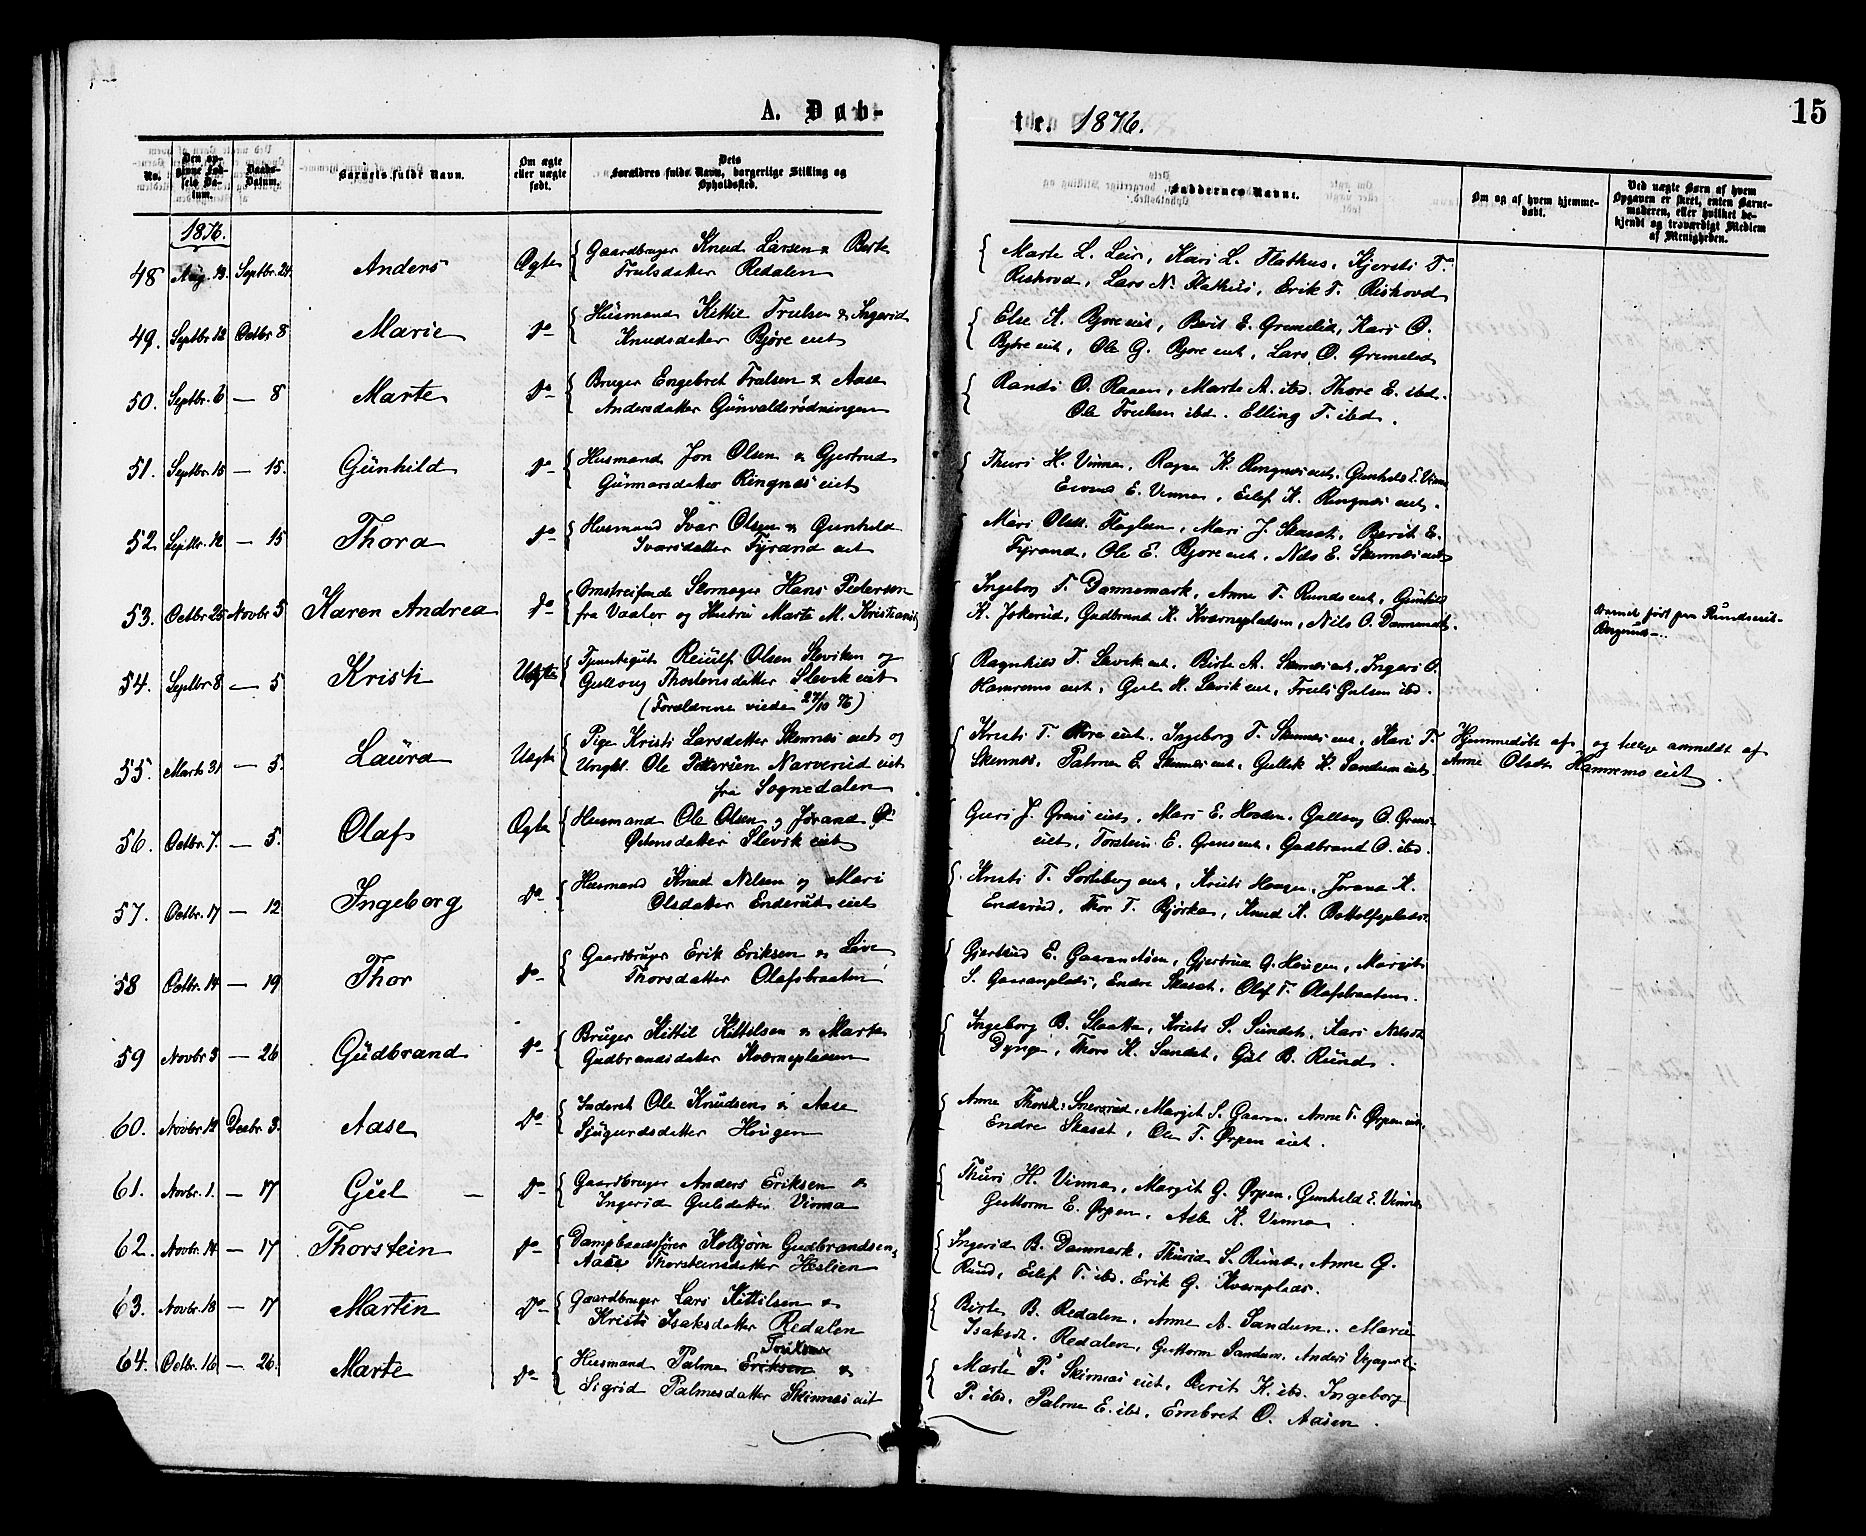 15
A. Døb-
te. 1876.
No.
Den opgivne Fødsels Datum.
Daabs-Datum.
Barnets fulde Navn.
Om ægte eller uægte født.
Dets Forældres fulde Navn, borgerlige Stilling og Opholdssted.
Faddernes Navne.
Om og af hvem hjemmedøbt.
Ved uægte Børn af hvem Opgaven er skeet, enten Barnemoderen, eller hvilket bekjendt og troværdigt Medlem af Menigheden.
1876.
48 Aug. 13. Septbr. 24. Anders Ægte Gaardbruger Knud Larsen & Birte
Trulsdatter Redalen
Marte L. Leir, Kari L. Flathus, Kjersti T.
Rishovd, Lars N. Flathus, Erik T. Rishovd
49. Septbr. 12 Octbr 8 Marie do Husmand Kittil Trulsen & Ingerid
Knudsdatter Bjøre eiet
Else K. Bjøre eiet, Berit E. Grimelid, Kari O.
Bjøre eiet, Ole G. Bjøre eiet, Lars O. Grimelid
50. Septbr. 6 — 8 Marte do Bruger Engebret Trulsen & Aase
Andersdatter Gunvaldsrødningen
Randi O. Raaen, Marte A. ibd. Thore E. ibd.
Ole Trulsen ibd. Elling T. ibd.
51. Septbr. 15 — 15. Gunhild do Husmand Jon Olsen & Gjertrud
Gunnarsdatter Ringnæs eiet
Thuri H. Vinna, Ragne K. Ringnæs eiet, Gunhild E. Vinna
E. Vinna, Eilef K. Ringnæs eiet.
52. Septbr. 12 — 15 Thora do Husmand Ivar Olsen & Gunhild
Ivarsdatter Fyrand eiet
Mari Olsdt. Haglesen, Mari J. Skasat, Berit E.
Fyrand, Ole E. Bjøre eiet, Nils E. Skinnæs eiet
53. Octbr 25 Novbr 5 Karen Andrea do Omstreifende Skomager Hans Pedersen
fra Vaaler og Hustru Marte M. Kristians
Ingeborg T. Dannemark, Anne T. Runds eiet, Gunhild
K. Jokerud, Gudbrand K. Kværnepladsen, Nils O. Dannemark.
Barnet født paa Rundseiet-
54. Septbr 8 — 5 Kristi Uægte Tjenestegut Reiulf Olsen Sleviken og
Gullaug Thorstensdatter Slevik eiet
(Forældrene viede 27/10 76)
Ragnhild T. Slevik eiet, Birte A. Skinnæs eiet, Ingeri O.
Hamremo eiet, Gul K. Slevik eiet, Truls Gulsen ibd.
55. Marts 31 — 5. Laura Uægte Pige Kristi Larsdatter Skinnæs eiet og
Ungkl. Ole Pettersen Narverud eiet
fra Sognedalen
Kristi T. Bjøre eiet, Ingeborg T. Skinnæs eiet, Kari T.
Skinnæs, Palme E. Skinnæs eiet, Gullik K. Sandum eiet.
Hjemmedøbt af og tillige anmeldt af
Anne Olsdtr Hamremo eiet.
56. Octbr. 7. — 5. Olaf Ægte Husmand Ole Olsen og Jørand
Østensdatter Slevik eiet
Guri J. Grøns eiet, Mari E. Gullaug O. Grøns
eiet, Torstein E. Grøns eiet, Gudbrand O. ibd.
57. Octbr. 17 — 12 Ingeborg do Husmand Knud Nilsen og Mari
Olsdatter Enderud eiet
Kristi T. Sorteberg eiet, Kristi Haugen, Jorann K.
Enderud, Thor T. Bjørke, Knud K. Bottolfsplads.
58 Octbr. 14 — 19 Thor do Gaardbruger Erik Eriksen & Live
Thorsdatter Olafsbraaten
Gjertrud E. Gaaranaasen, Gjertrud G. Haugen, Margit
S. Gaaranplads, Endre Skasat, Olaf T. Olafsbraaten.
59 Novbr 3 — 26 Gudbrand do Bruger Kittil Kittilsen & Marte
Gudbrandsdatter Kværnepladsen
Ingeborg B. Slaatta, Kristi S. Sundet, Kari Nilsdt.
Dynge, Thore K. Sandet, Gul B. Rund.
60. Novbr 12 Decbr 3. Aase do Inderst Ole Knudsen & Aase
Sjugurdsdatter Hougen
Anne Thorsdt. Snersrud, Margit S. Gaaren, Anne T. Ørpen eiet,
Endre Skasat, Ole T. Ørpen eiet.
61. Novbr. 1. — 17 Gul do Gaardbruger Anders Eriksen &
Ingerid Gulsdatter Vinna
Thuri H. Vinna, Margit G. Ørpen, Gunhild E. Vinna
Guttorm E. Ørpen, Asle K. Vinna.
62. Novbr. 14 — 17 Thorstein do Dampbaadsfører Kolbjørn Gudbrandsen,
Aase Thorsteinsdatter Heslien
Ingerid B. Danmark, Thurid S. Rund, Anne G.
Rund, Eilef T. ibd. Erik G. Kværnplads.
63. Novbr. 18 — 17 Martin do Gaardbruger Lars Kittilsen &
Kristi Isaksdatter Redalen
Birte B. Redalen, Anne A. Sandum, Marie
Isaksdt. Redalen, Guttorm Sandum, Anders
64. Octbr. 16 — 26. Marte do Husmand Palme Eriksen Trulsen &
Sigrid Palmesdatter Skinnæs eiet
Marte P. Skinnæs eiet, Berit K. ibd. Ingeborg
P. ibd. Palme E. ibd. Embret O. Aasen.